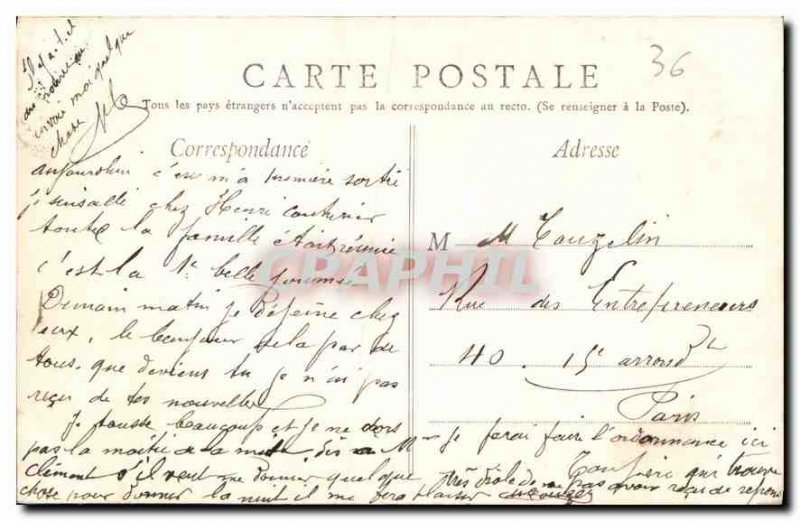 Il y a-t-il
envoi moi quelque
chose
36
CARTE POSTALE
Tous les pays étrangers n'acceptent pas la correspondance au recto. (Se renseigner à la Poste).
Correspondance
Adresse
aujourdhui c'est m'a premiere sortie
je suis allé chez Henri couturier
toute la famille était réunie
c'est la 1e belle journée
CPAPHIL
Demain matin je déjeune chez
eux, le bonjour de la par de
tous, que deviens tu je n'ai pas
reçus de tes nouvelles
je tousse beaucoup et je ne dors
pas la moitié de la nuit dis a M
clément s'il veut me donner quelque
chose pour donner la nuit il me fera plaisir
M M Tougelin
Rue des Entrepreneurs
40. 15e arrond
Paris
je ferai faire l'ordonnance ici
qui trouve
très drôle de ne pas avoir reçus de reponse